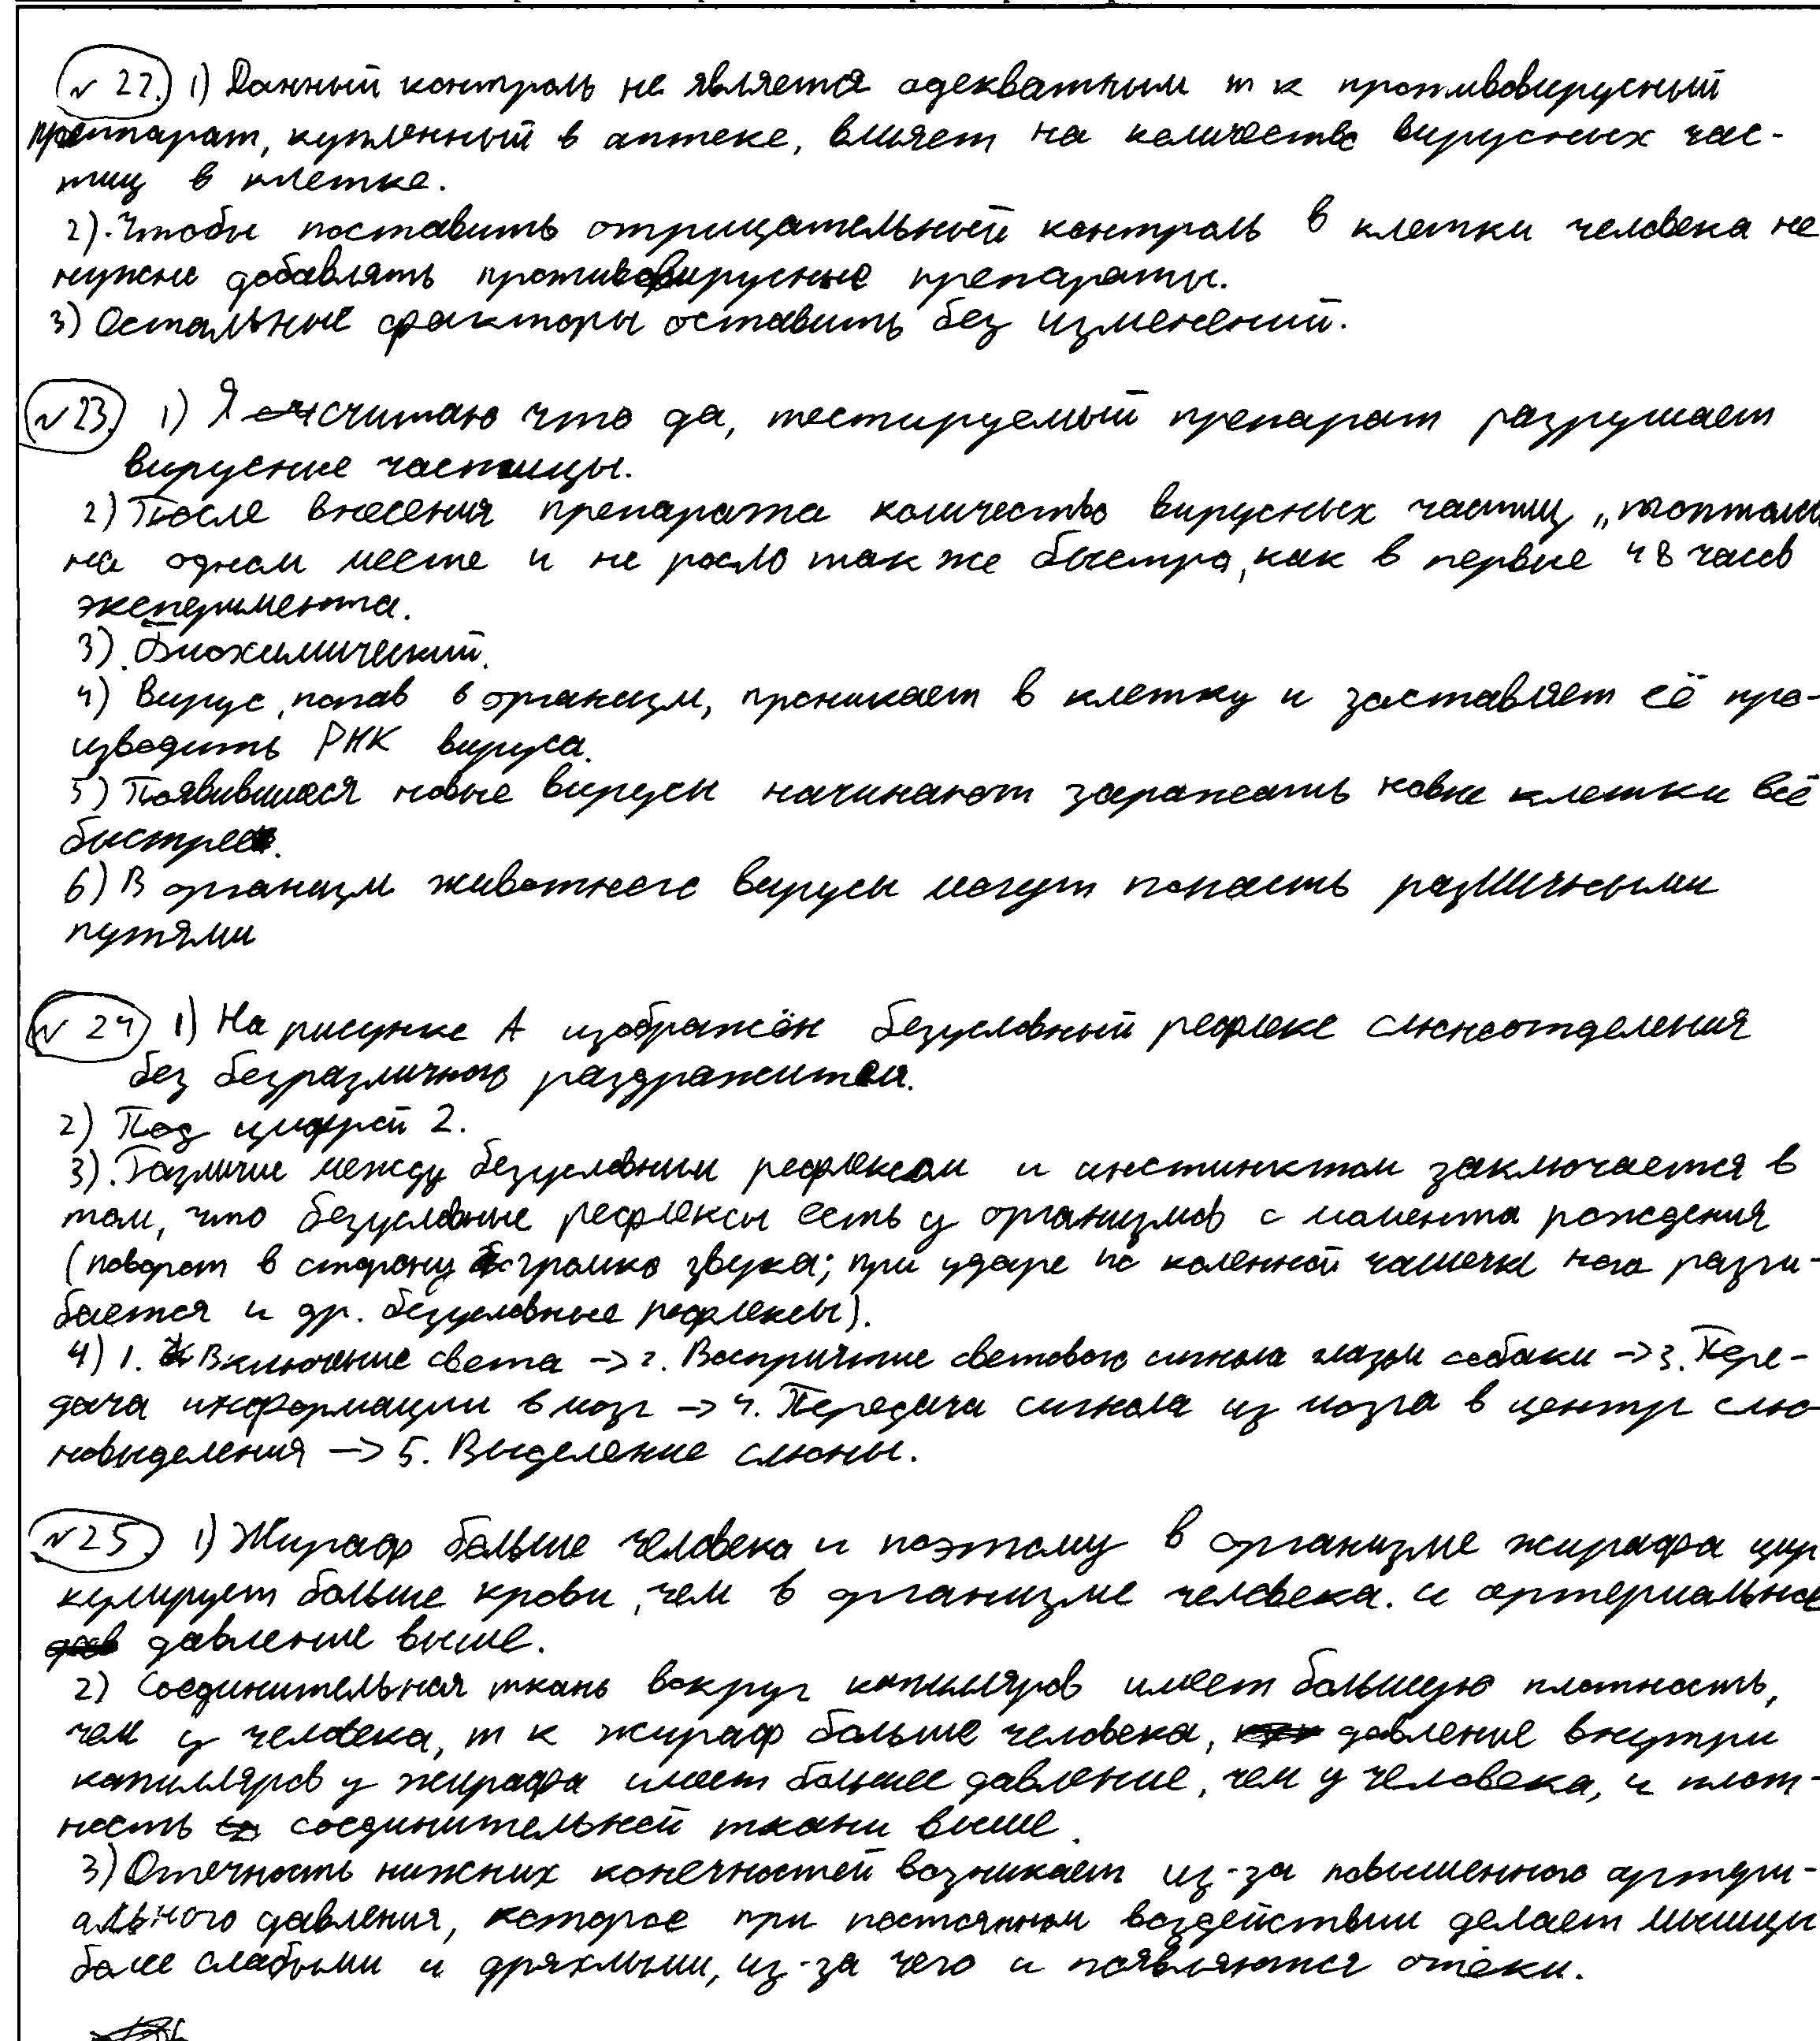 № 22. 1) Данный контроль не является адекватным т к противовирусный
препарат, купленный в аптеке, влияет на количество вирусных час-
тиц в клетке.
2). Чтобы поставить отрицательный контроль в клетки человека не
нужно добавлять противовирусные препараты.
3) Остальные факторы оставить без изменений.
№ 23 1) Я считаю что да, тестируемый препарат разрушает
вирусные частицы.
2) После внесения препарата количество вирусных частиц „топтались
на одном месте и не росло так же быстро, как в первые 48 часов
эксперимента.
3). Биохимический.
4) Вирус, попав в организм, проникает в клетку и заставляет её про-
изводить РНК вируса.
5) Появившиеся новые вирусы начинают заражать новые клетки всё
быстрее.
6) В организм животного вирусы могут попасть различными
путями
№ 24 1) На рисунке А изображён безусловный рефлекс слюноотделения
без безразличного раздражителя.
2) Под цифрой 2.
3). Различие между безусловным рефлексом и инстинктом заключается в
том, что безусловные рефлексы есть у организмов с момента рождения
(поворот в сторону громко звука; при ударе по коленной чашечке нога разги-
бается и др. безусловные рефлексы).
4) 1. Включение света -> 2. Восприятие светового сигнала глазом собаки -> 3. Пере-
дача информации в мозг -> 4. Передача сигнала из мозга в центр слю
новыделения -> 5. Выделение слюны.
№ 25 1) Жираф больше человека и поэтому в организме жирафа цир
кулирует больше крови, чем в организме человека. и артериальное
давление выше.
2) Соединительная ткань вокруг капилляров имеет большую плотность,
чем у человека, т к жираф больше человека, давление внутри
капилляров у жирафа имеет большее давление, чем у человека, и плот-
ность соединительной ткани выше.
3) Отечность нижних конечностей возникает из-за повышенного артери-
ального давления, которое при постоянном воздействии делает мышцы
более слабыми и дряхлыми, из-за чего и появляются отёки.